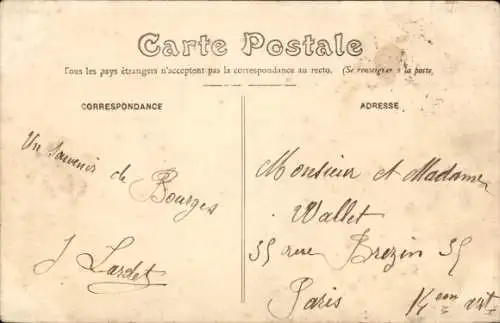 Carte Postale
Tous les pays étrangers n'acceptent pas la correspondance au recto. (Se renseigner à la poste)
CORRESPONDANCE
ADRESSE
Un souvenir de
Bourges
J Lardet
Monsieur et Madame
Wallet
35 rue Brezin 35
Paris 14 eme arrt